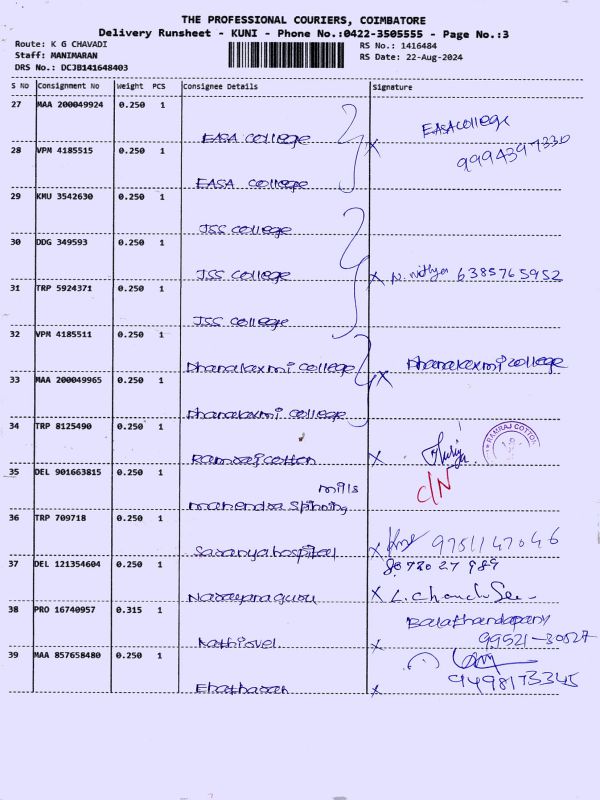 THE PROFESSIONAL COURIERS, COIMBATORE
Delivery Runsheet - KUNI - Phone No.:0422-3505555 - Page No.:3
Route: K G CHAVADI
RS No.: 1416484
Staff: MANIMARAN
RS Date: 22-Aug-2024
DRS No.: DCJB141648403
S No Consignment No Weight PCS Consignee Details Signature
27 MAA 200049924 0.250 1
EASA College
EASA College
9994397330
28 VPM 4185515 0.250 1
EASA College
29 KMU 3542630 0.250 1
JSS College
30 DDG 349593 0.250 1
JSS College X N. Nithya 6385765952
31 TRP 5924371 0.250 1
JSS College
32 VPM 4185511 0.250 1
Dhanalaxmi College X Dhanalaxmi College
33 MAA 200049965 0.250 1
Dhanalaxmi College
34 TRP 8125490 0.250 1
Ramraj Cotton X
RAMRAJ COTTON
35 DEL 901663815 0.250 1 C/N
mills
Mahendra Spinning
36 TRP 709718 0.250 1
Saranya hospital X 9751147046
37 DEL 121354604 0.250 1
Narayanaguru X
38 PRO 16740957 0.315 1
Kathirvel X 99521-30527
39 MAA 857658480 0.250 1
X 9498173345